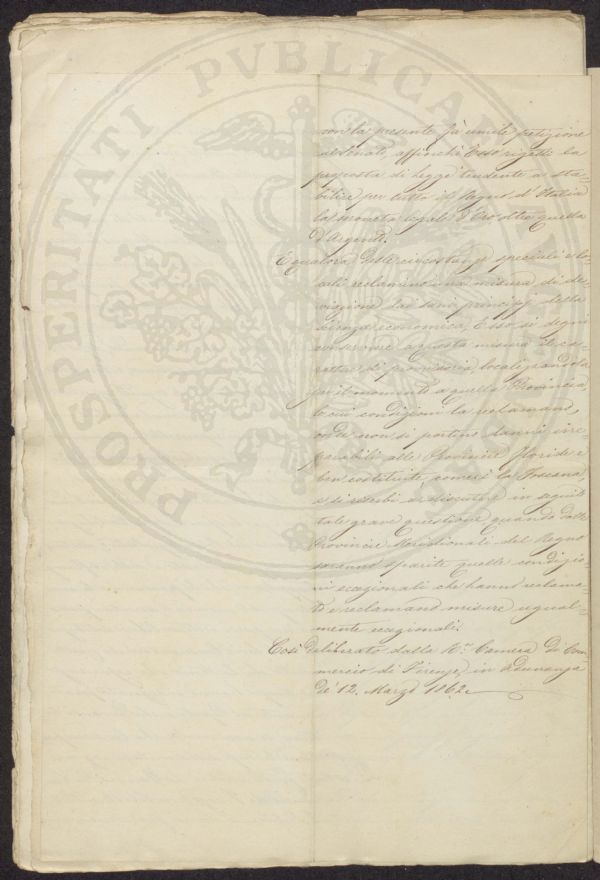 PROSPERITATI PVBLICAE
con la presente fà umile petizione
al Senato, affinchè Esso rigetti la
proposta di Legge tendente a sta-
bilire per tutto il Regno d'Italia
la moneta legale d'Oro oltre quella
d'Argento.
E qualora delle circostanze speciali e lo-
cali reclamino una misura di de-
viazione dai sani principj della
scienza economica, Esso si degni
conservare a questa misura il ca-
rattere di provvisoria, localizzandola
per il momento a quelle Provincie,
le cui condizioni la reclamano,
onde non si portino danni irre-
parabili alle Provincie floride e
ben costituite, come è la Toscana,
e si riserbi a discutere in seguito
tale grave questione quando dalle
Provincie Meridionali del Regno
saranno sparite quelle condizio-
ni eccezionali che hanno reclama-
to e reclamano misure egual-
mente eccezionali.
Così deliberato dalla R.ª Camera di Com-
mercio di Firenze, in adunanza
de' 12. Marzo 1862